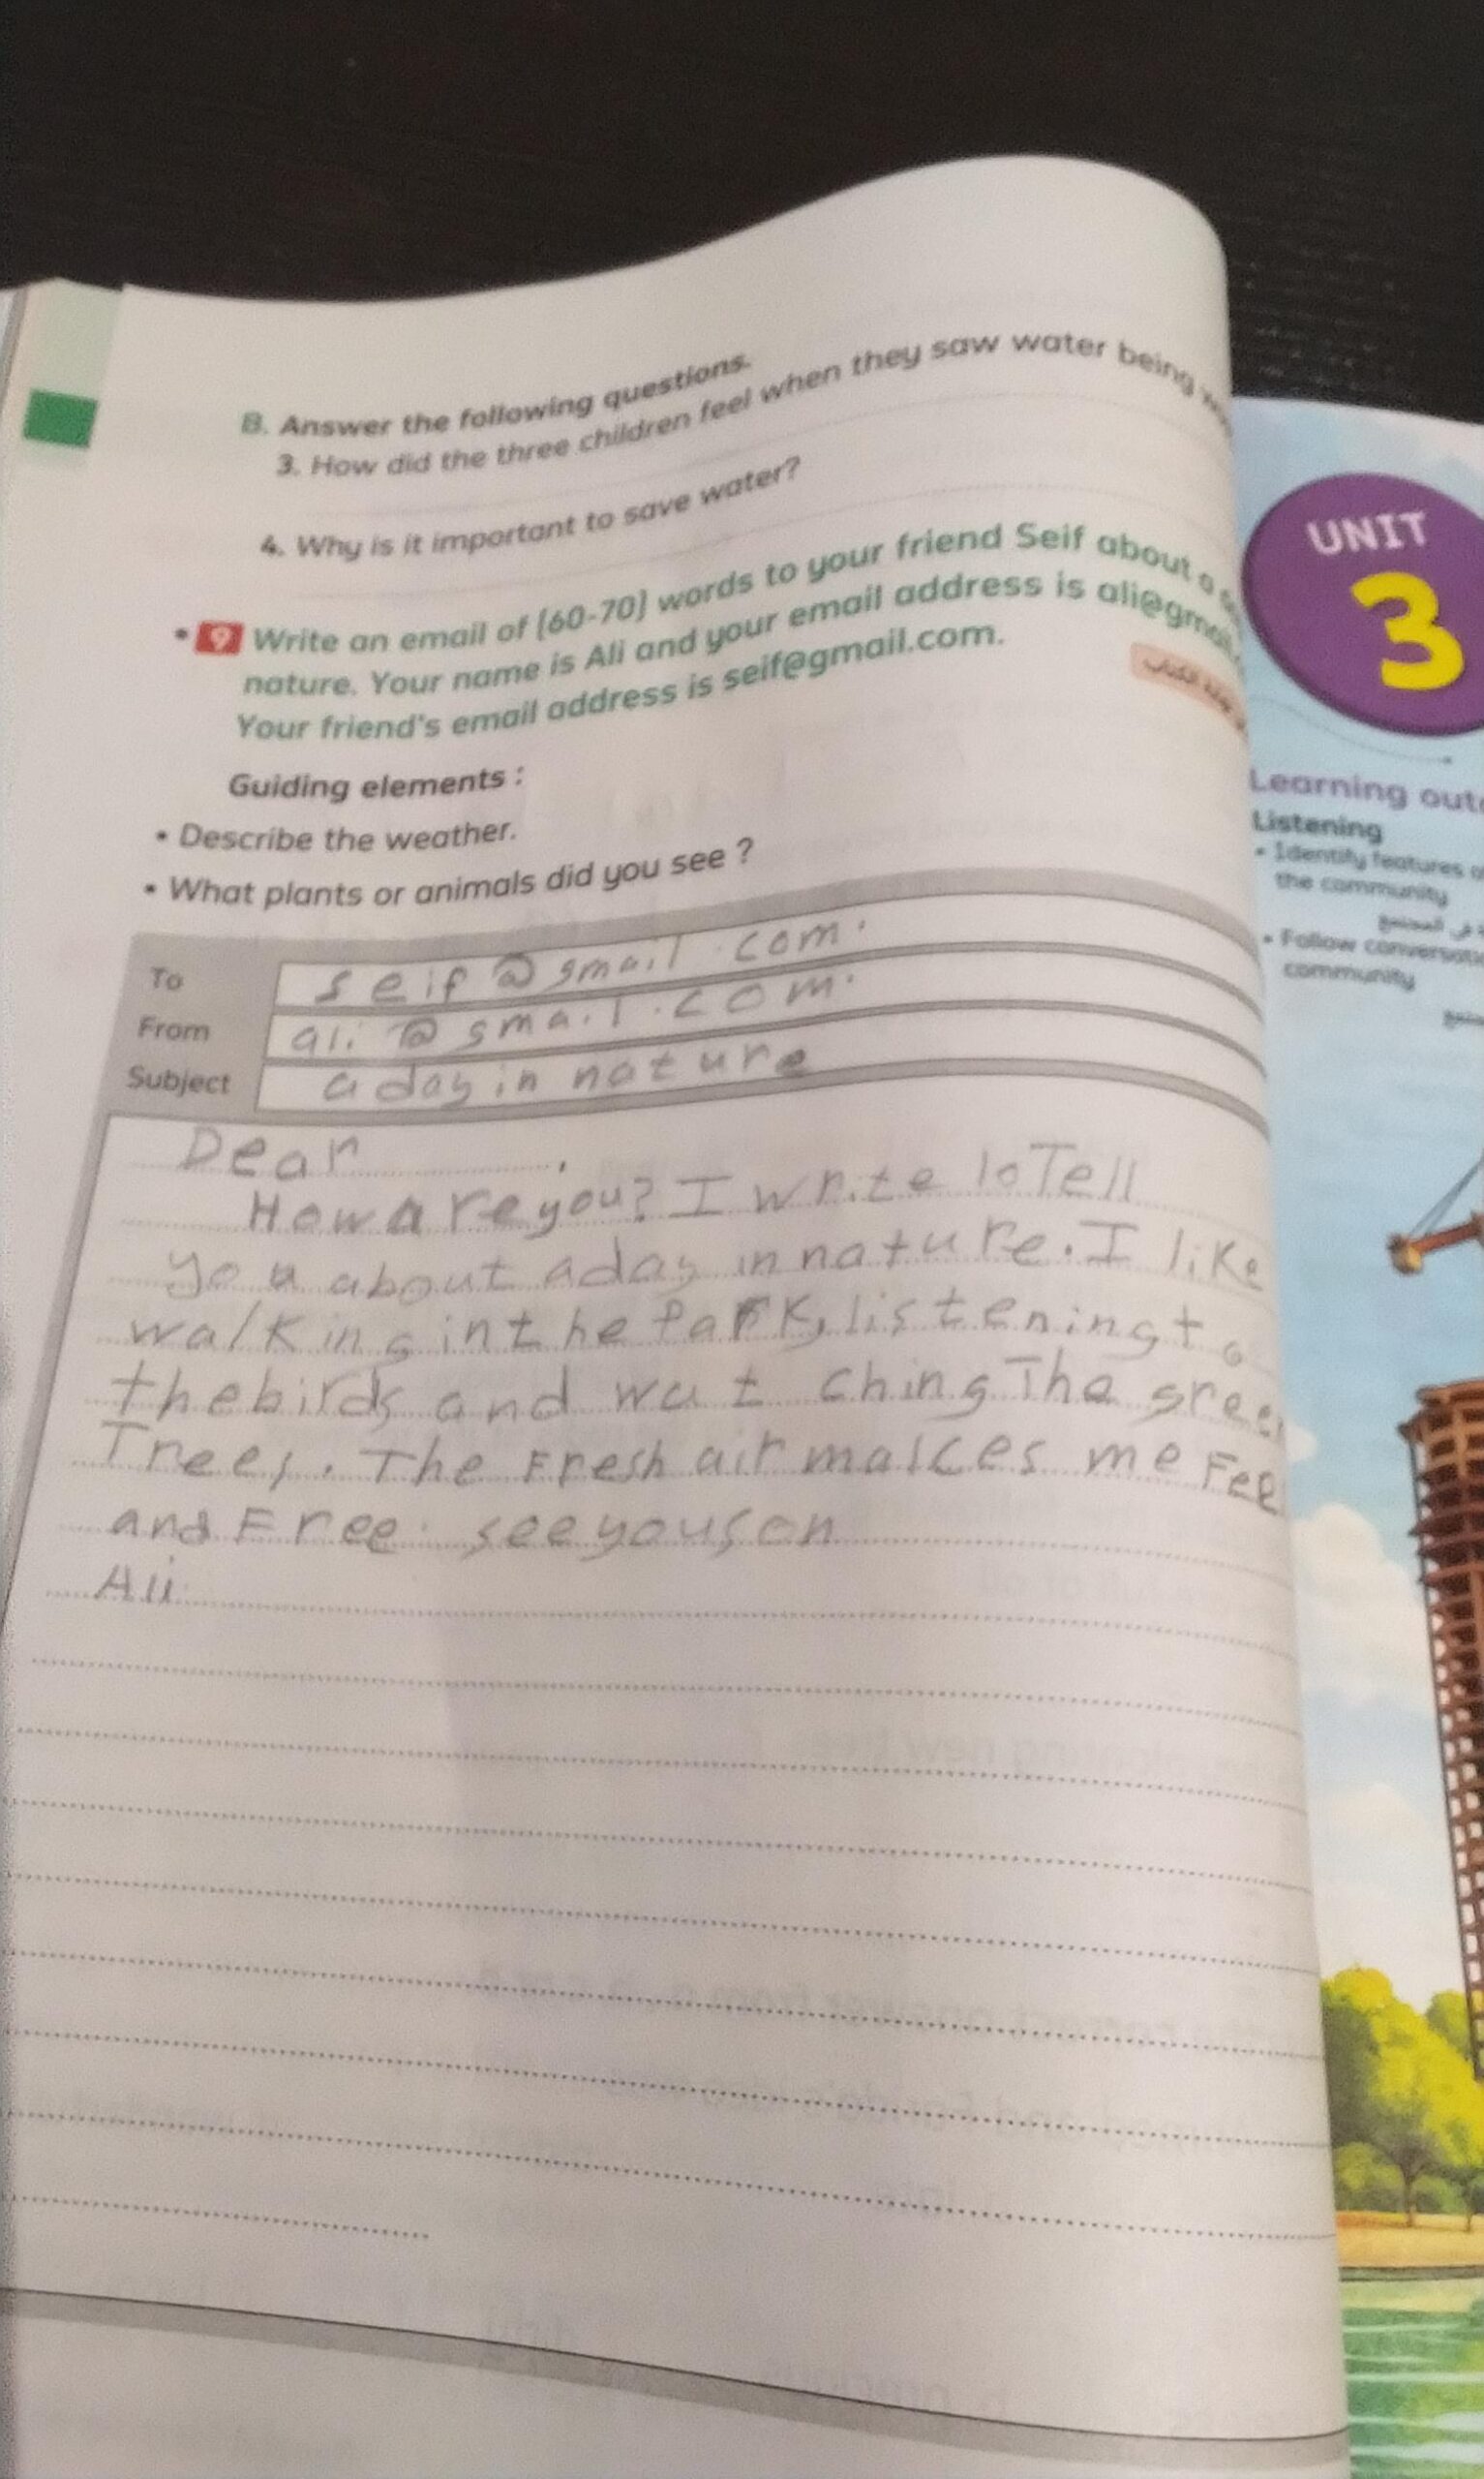 B. Answer the following questions.
3. How did the three children feel when they saw water being
4. Why is it important to save water?
• 9 Write an email of (60-70) words to your friend Seif about a
nature. Your name is Ali and your email address is ali@gmail.
Your friend's email address is seif@gmail.com.
Guiding elements :
• Describe the weather.
• What plants or animals did you see ?
To seif@gmail.com.
From ali@gmail.com.
Subject a day in nature
Dear
How are you? I write to Tell
you about a day in nature. I like
walking in the park, listening to
the birds and watching The green
Trees. The Fresh air makes me Feel
and Free. see you son
Ali
UNIT
3
Learning
Listening
• Identify features
the community
• Follow
community